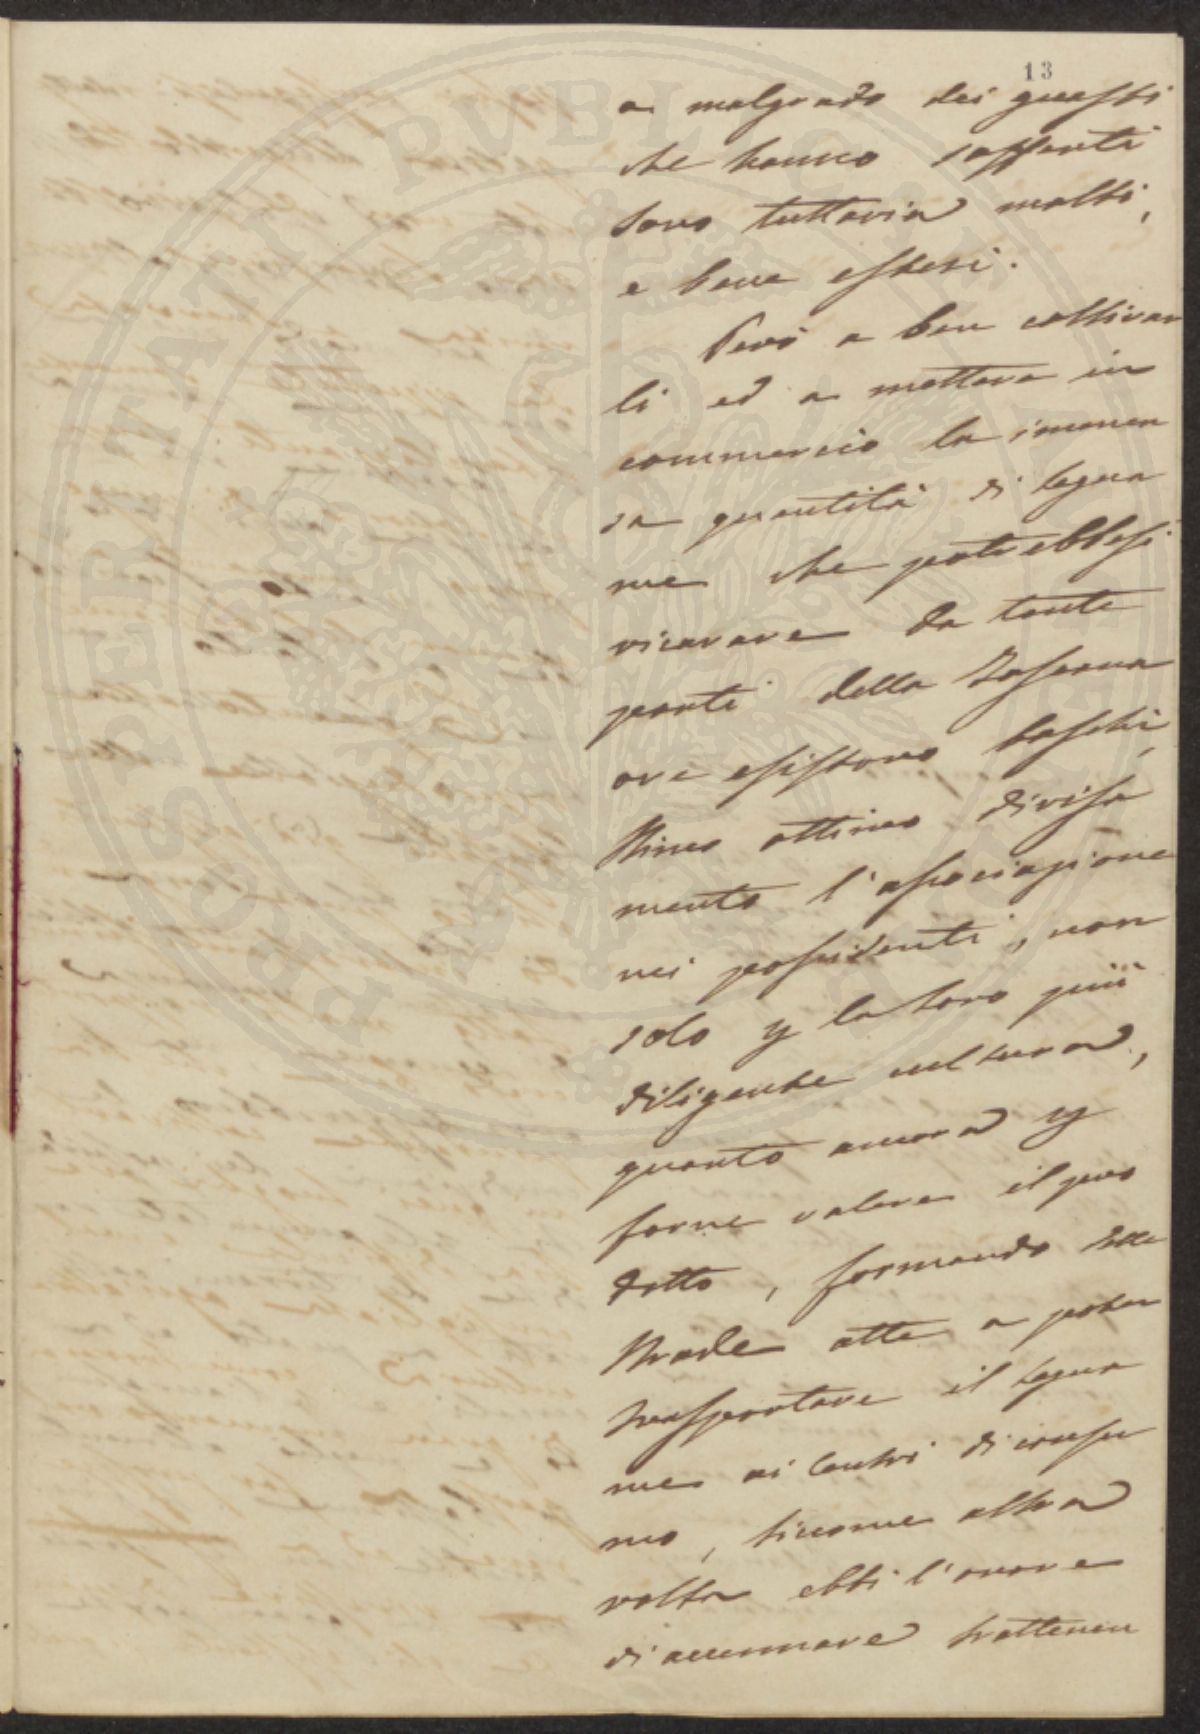 13
a malgrado dei guasti
che hanno sofferti
sono tuttavia molti,
e bene estesi.
Però a ben coltivar
li ed a mettere in
commercio la immen
sa quantità di legna
me che potrebbesi
ricavare da tante
parti della Toscana
ove esistono boschi,
stimo ottimo divisa
mento l'associazione
nei possidenti, non
solo p la loro più
diligente cultura,
quanto ancora p
farne valere il pro
dotto, formando delle
strade atte a poter
trasportare il legna
me ai centri di consu
mo, siccome altra
volta ebbi l'onore
di accennare trattenen
PROSPERITATI PVBLICAE